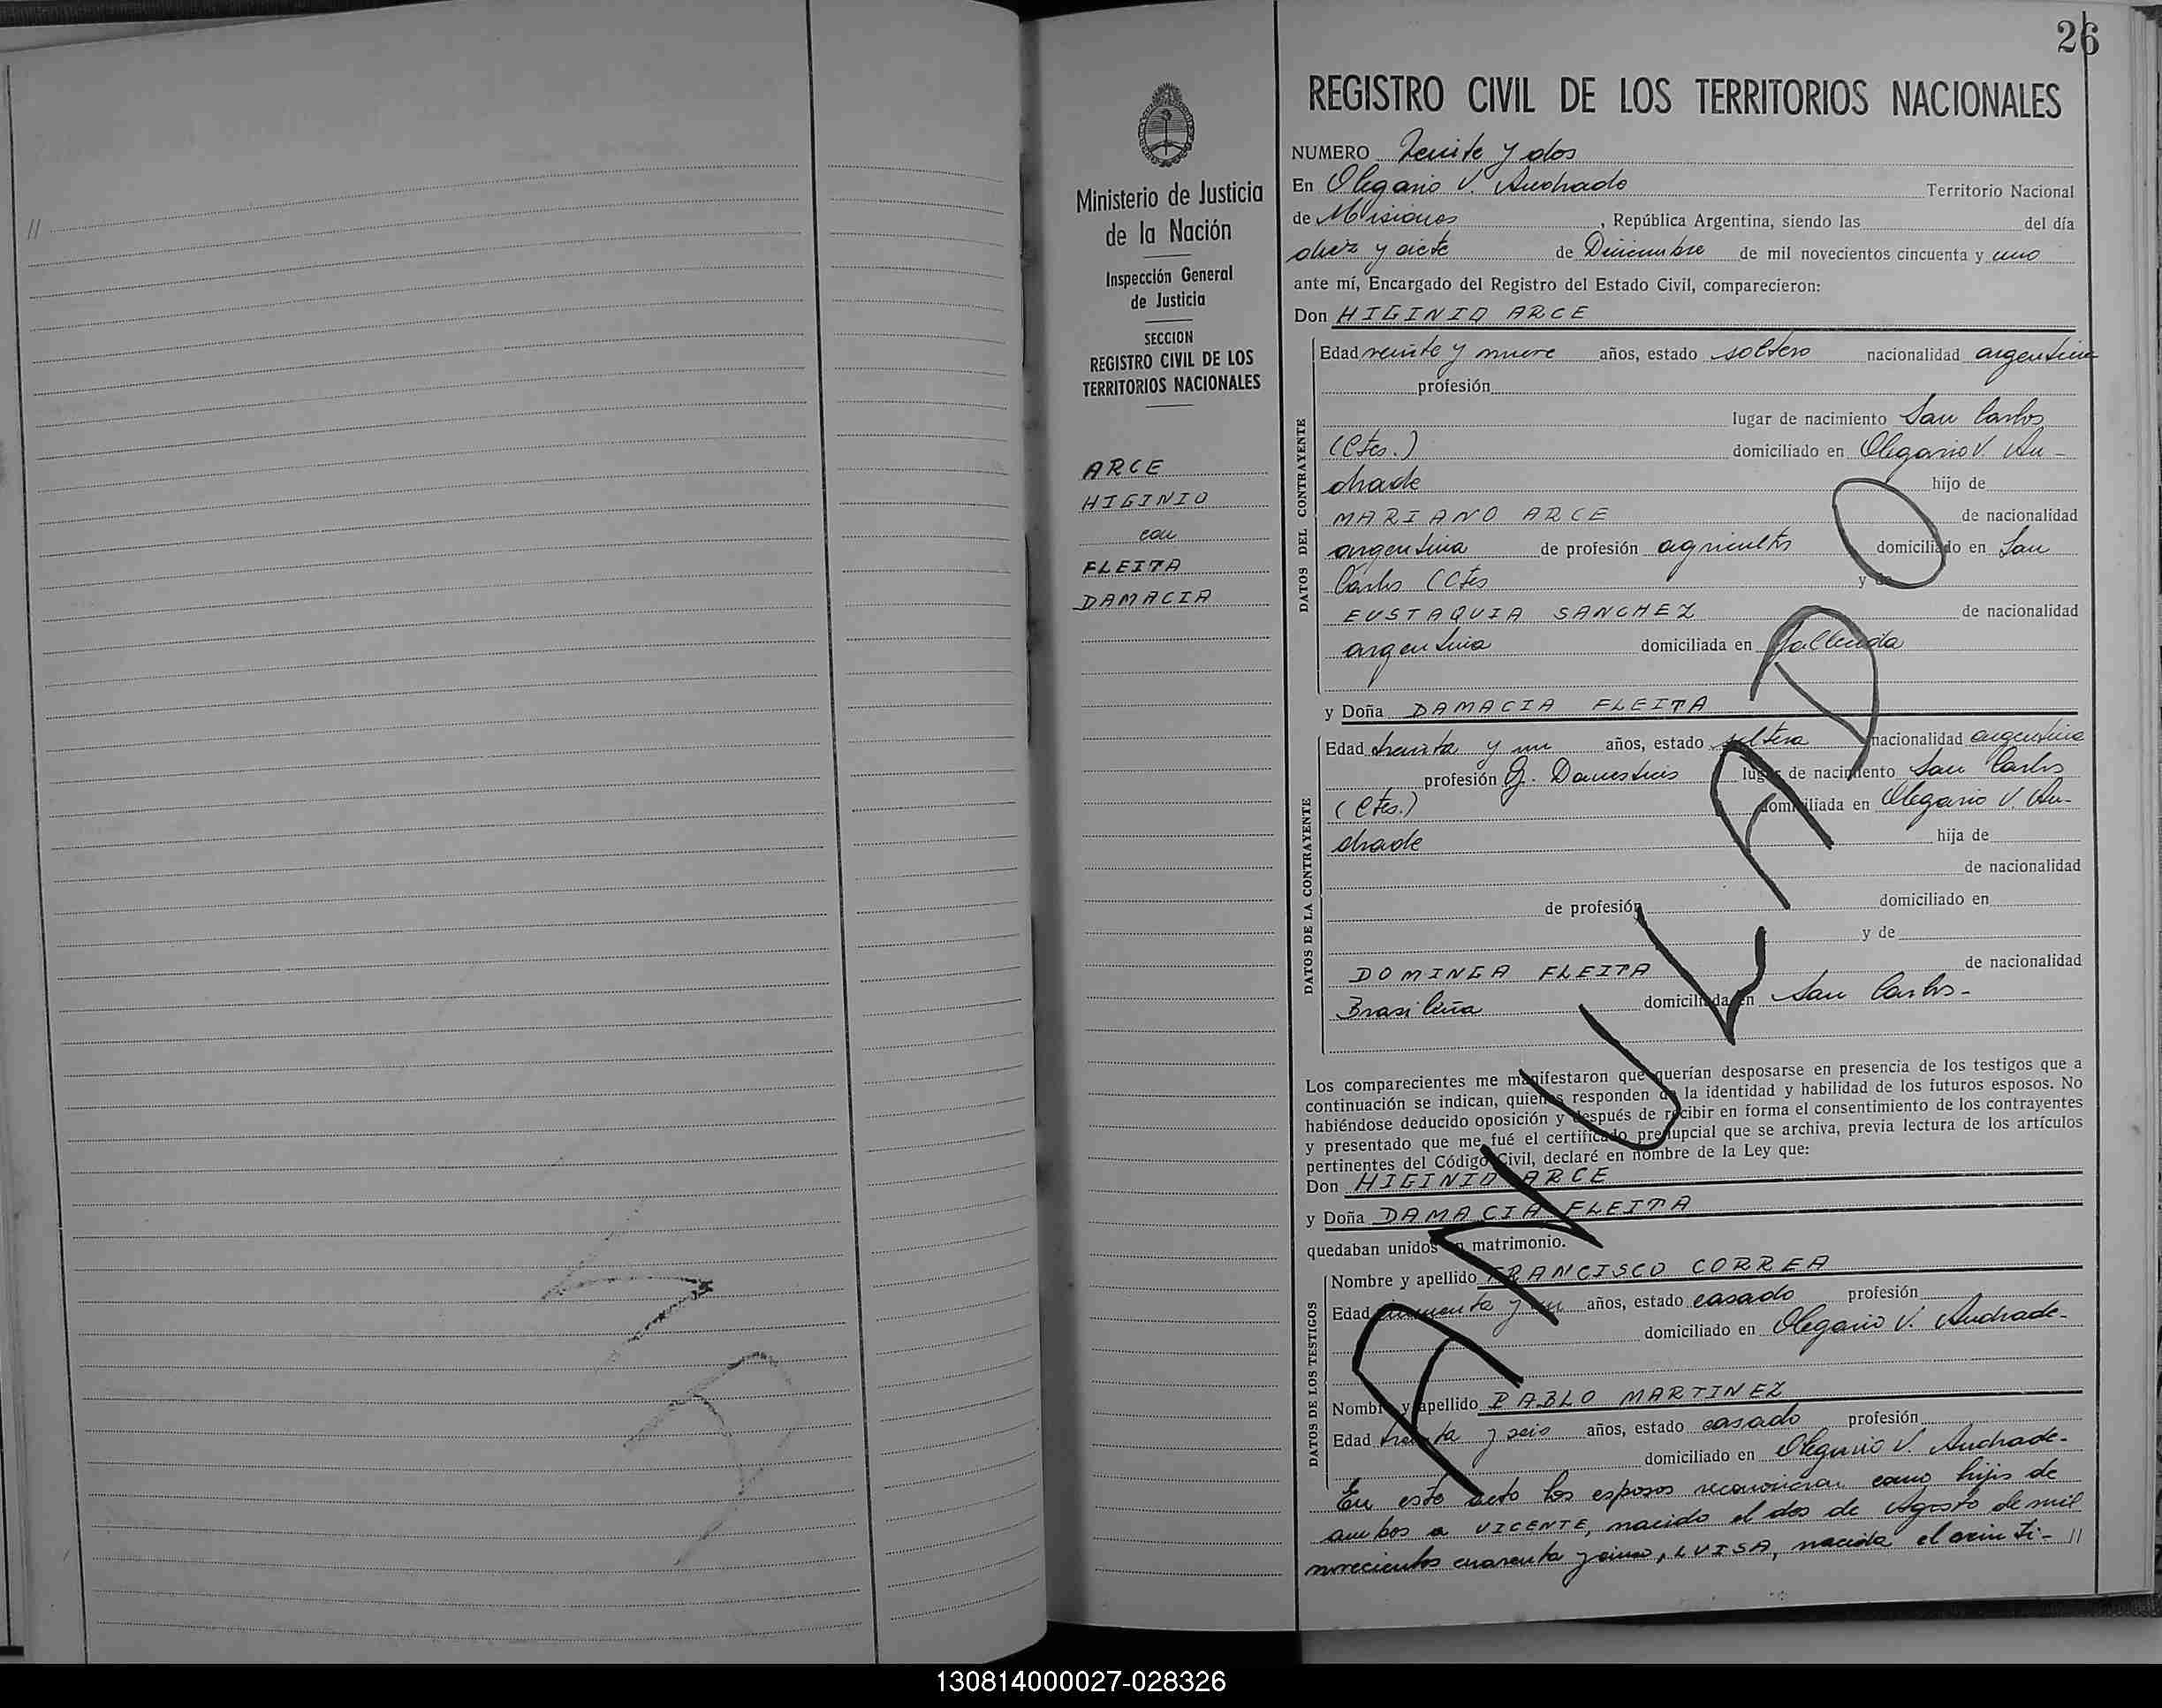 //
26
Ministerio de Justicia
de la Nación
Inspección General
de Justicia
SECCION
REGISTRO CIVIL DE LOS
TERRITORIOS NACIONALES
ARCE
HIGINIO
con
FLEITA
DAMACIA
REGISTRO CIVIL DE LOS TERRITORIOS NACIONALES
NUMERO Veinte y dos
En Olegario V. Andrade Territorio Nacional
de Misiones, República Argentina, siendo las del día
diez y siete de Diciembre de mil novecientos cincuenta y uno
ante mí, Encargado del Registro del Estado Civil, comparecieron:
Don HIGINIO ARCE
DATOS DEL CONTRAYENTE
Edad veinte y nueve años, estado soltero nacionalidad argentina
profesión
lugar de nacimiento San Carlos
(Ctes.) domiciliado en Olegario V. An-
drade hijo de
MARIANO ARCE de nacionalidad
argentina de profesión agricultor domiciliado en San
Carlos (Ctes y de
EUSTAQUIA SANCHEZ de nacionalidad
argentina domiciliada en fallecida
y Doña DAMACIA FLEITA
DATOS DE LA CONTRAYENTE
Edad treinta y un años, estado soltera nacionalidad argentina
profesión Q. Domesticos lugar de nacimiento San Carlos
(Ctes.) domiciliada en Olegario V. An-
drade hija de
de nacionalidad
de profesión domiciliado en
y de
DOMINGA FLEITA de nacionalidad
Brasileña domiciliada en San Carlos-
Los comparecientes me manifestaron que querían desposarse en presencia de los testigos que a
continuación se indican, quienes responden de la identidad y habilidad de los futuros esposos. No
habiéndose deducido oposición y después de recibir en forma el consentimiento de los contrayentes
y presentado que me fué el certificado prenupcial que se archiva, previa lectura de los artículos
pertinentes del Código Civil, declaré en nombre de la Ley que:
Don HIGINIO ARCE
y Doña DAMACIA FLEITA
quedaban unidos en matrimonio.
DATOS DE LOS TESTIGOS
Nombre y apellido FRANCISCO CORREA
Edad cincuenta y un años, estado casado profesión
domiciliado en Olegario V. Andrade-
Nombre y apellido PABLO MARTINEZ
Edad treinta y seis años, estado casado profesión
domiciliado en Olegario V. Andrade-
En este acto los esposos reconocieron como hijos de
ambos a VICENTE, nacido el dos de Agosto de mil
novecientos cuarenta y cinco, LUISA, nacida el veinti- //
ANULADO
130814000027-028326